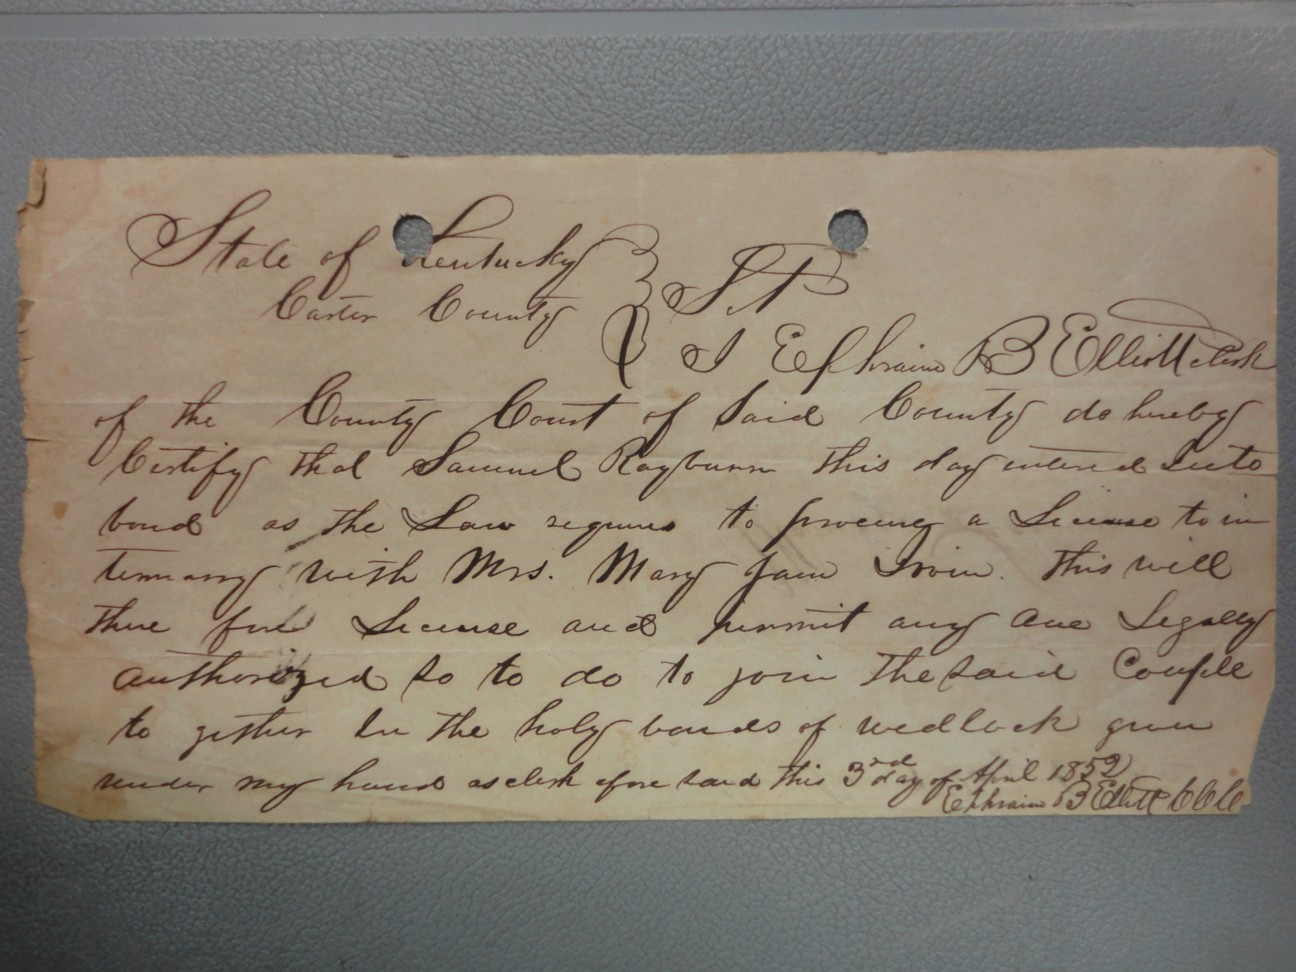 State of Kentucky } Sct
Carter County }
I Ephraim B Elliott clerk
of the County Court of Said County do hereby
Certify that Samuel Rayburn this day entered into
bond as the Law requires to procure a License to in
termarry with Mrs. Mary Jane Irvin. This will
there fore License and permit any one Legally
authorized so to do to join the said Couple
to gether In the holy bonds of wedlock given
under my hand as clerk afore said this 3rd day of April 1852
Ephraim B Elliott C C C